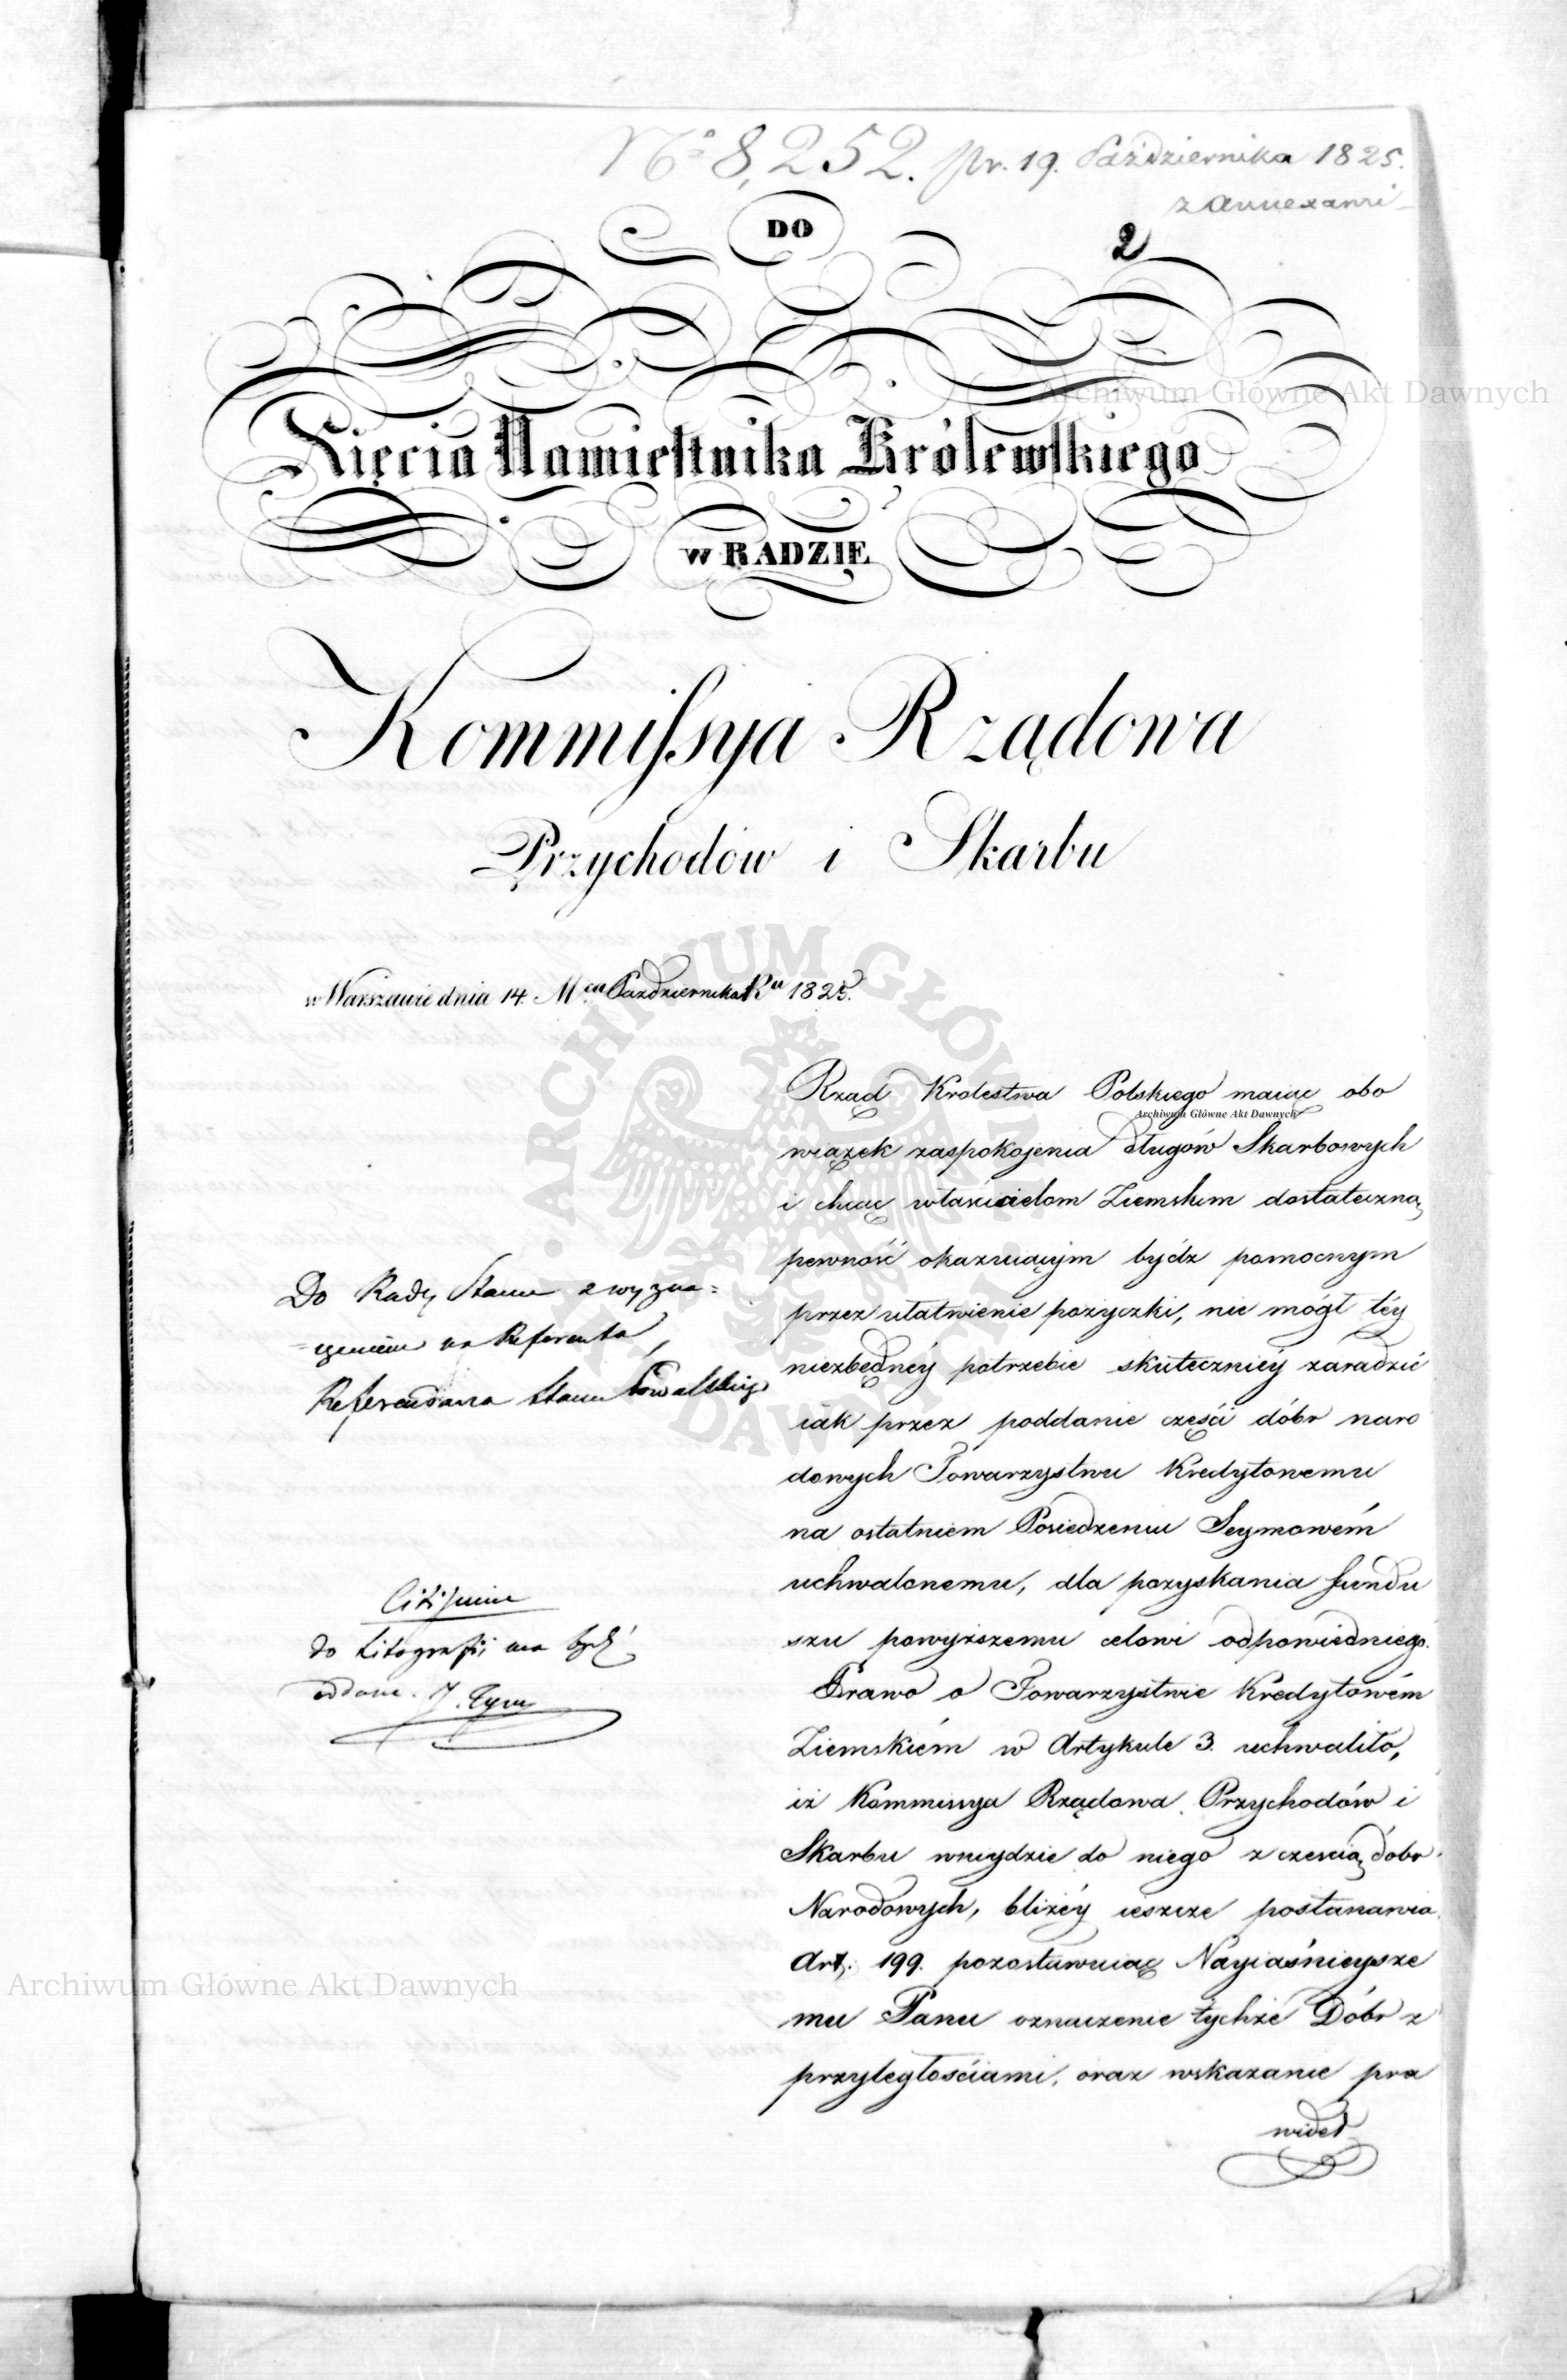 Nº 8,252. pr. 19. Października 1825.
z annexami
2
DO
Xięcia Namiestnika Królewskiego
w RADZIE
Kommissya Rządowa
Przychodów i Skarbu
w Warszawie dnia 14. Mca Października Ru 1825.
Rząd Krolestwa Polskiego maiąc obo
wiązek zaspokojenia długów Skarbowych
i chcąc właścicielom Ziemskim dostateczną
pewność okazuiącym bydz pomocnym
przez ułatwienie pożyczki, nie mógł téy
niezbędnéy potrzebie skuteczniéy zaradzić
iak przez poddanie częśći dóbr naro
dowych Towarzystwu Kredytowemu
na ostatniem Posiedzeniu Seymowém
uchwalonemu, dla pozyskania fundu
szu powyższemu celowi odpowiedniego.
Prawo o Towarzystwie Kredytowém
Ziemskiém w Artykule 3. uchwaliło,
iż Kommissya Rządowa Przychodów i
Skarbu wniydzie do niego z częscią dobr
Narodowych, bliżéy ieszcze postanawia
Art: 199. pozostawuiąc Nayiaśnieysze
mu Panu oznaczenie tychże Dóbr z
przyległośćiami, oraz wskazanie pra
wideł
Do Rady Stanu z wyzna=
=czeniem na Referenta,
Referendarza Stanu
Citissime
do Litografii ma bydź
oddane.
Archiwum Główne Akt Dawnych
Archiwum Główne Akt Dawnych
Archiwum Główne Akt Dawnych
ARCHIWUM GŁÓWNE AKT DAWNYCH